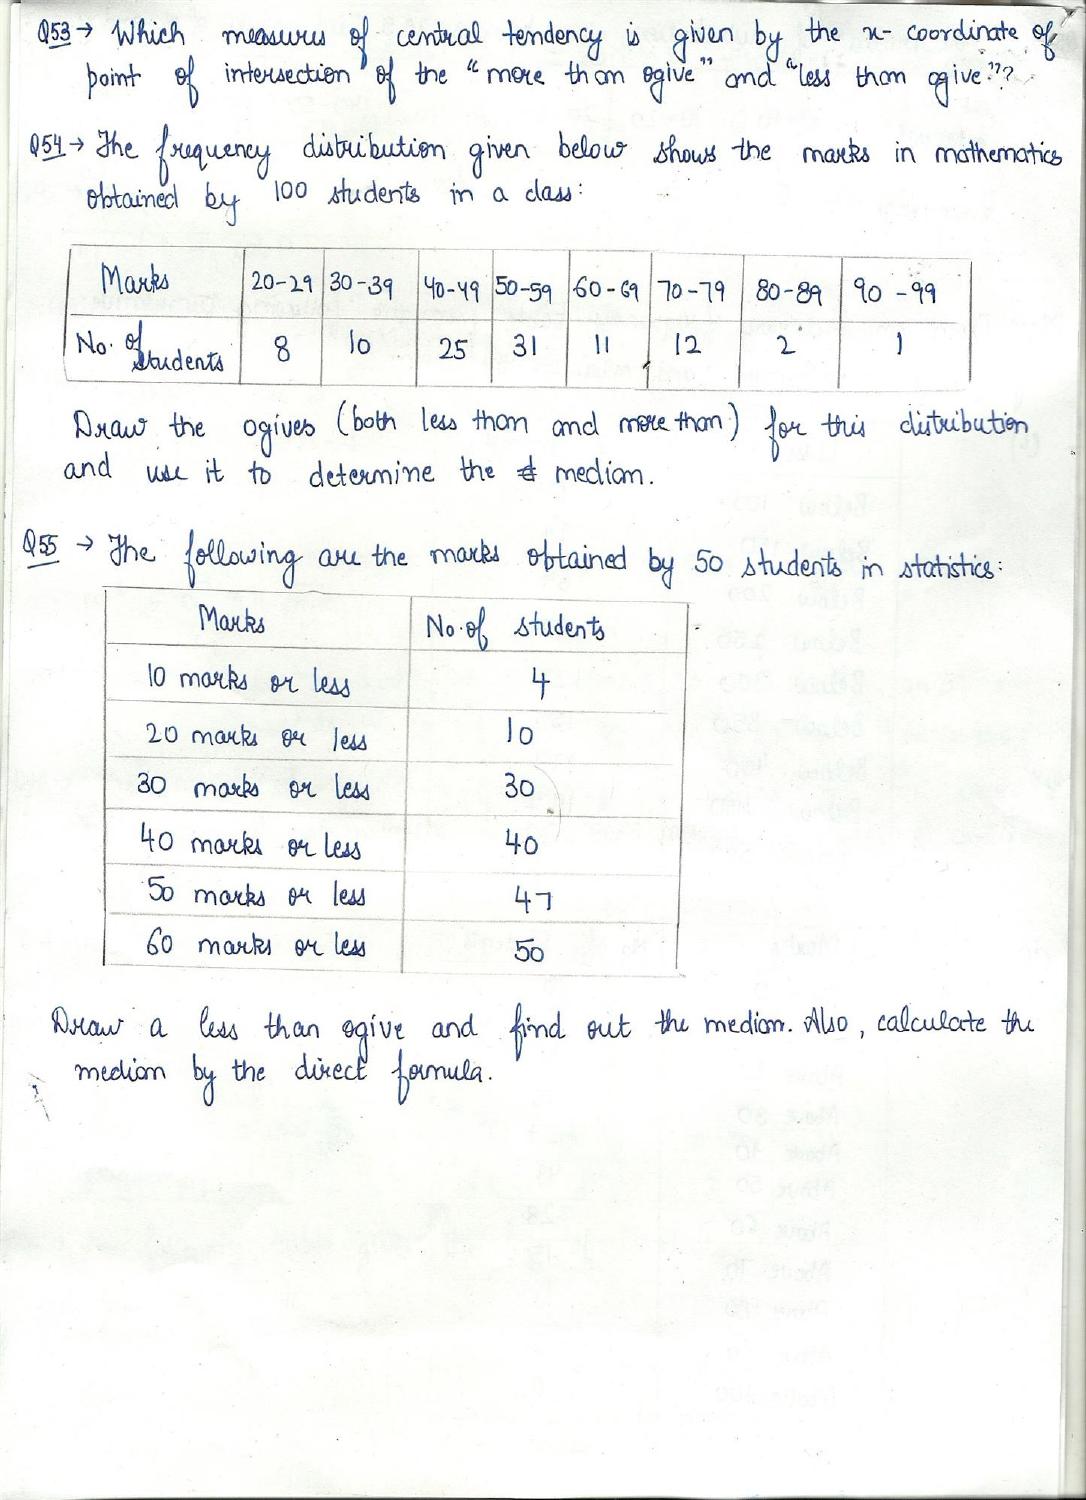 Q53 → Which measures of central tendency is given by the x- coordinate of
point of intersection of the "more than ogive" and "less than ogive"?
Q54 → The frequency distribution given below shows the marks in mathematics
obtained by 100 students in a class:
Marks 20-29 30-39 40-49 50-59 60-69 70-79 80-89 90-99
No. of students 8 10 25 31 11 12 2 1
Draw the ogives (both less than and more than) for this distribution
and use it to determine the median.
Q55 → The following are the marks obtained by 50 students in statistics:
Marks No. of students
10 marks or less 4
20 marks or less 10
30 marks or less 30
40 marks or less 40
50 marks or less 47
60 marks or less 50
Draw a less than ogive and find out the median. Also, calculate the
median by the direct formula.